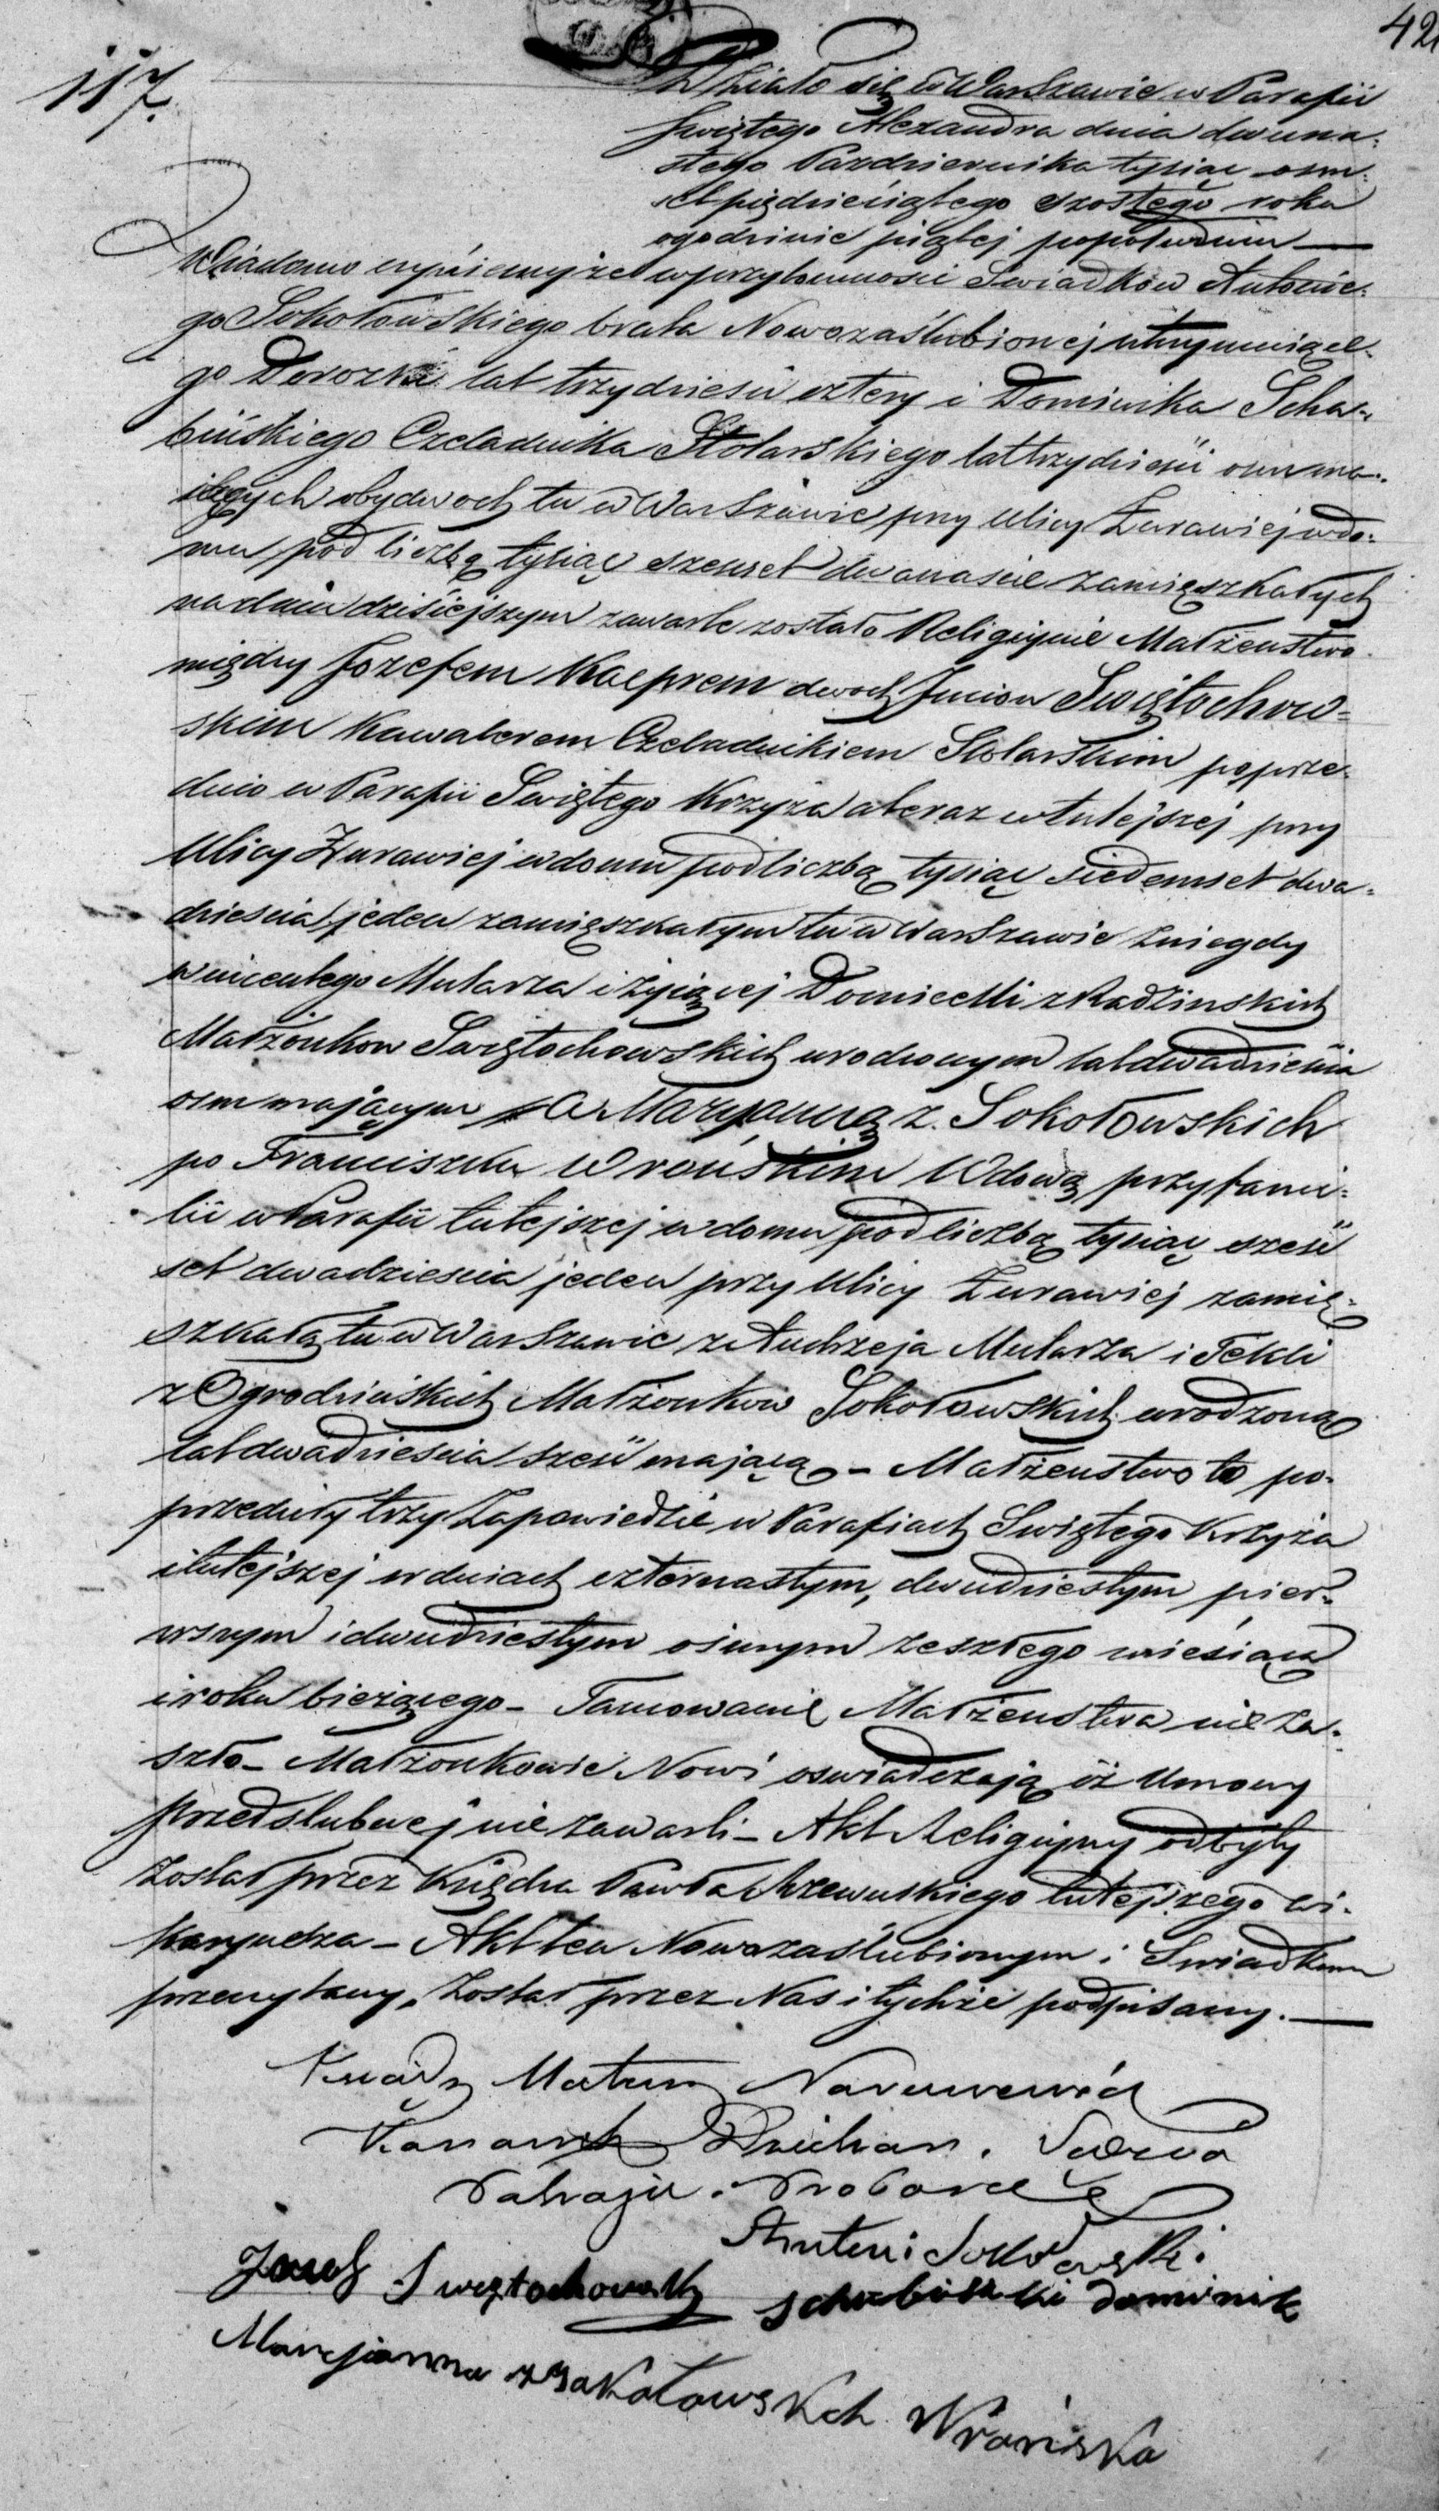 42
117.
Działo się w Warszawie w Parafii
Swiętego Alexandra dnia dwuna-
stego Pazdziernika tysiąc osm-
set pięćdziesiątego szostego roku
o godzinie piątej popołudniu —
Wiadomo czyniemy że w przytomności Swiadków Antonie-
go Sokołowskiego brata Nowozaślubionej utrzymuiące-
go Dorozki lat trzydzieści cztery i Dominika Scha-
bińskiego Czeladnika Stolarskiego lat trzydzieści osm ma-
iących obydwoch tu w Warszawie przy Ulicy Żurawiej w do-
mu pod liczbą tysiąc szenset dwanaście zamięszkałych
na dniu dzisiejszym zawarte zostało Religijnie Małżeństwo
między Jozefem Kacprem dwoch Imion Swiętochow-
skim Kawalerem Czeladnikiem Stolarskim poprze-
dnio w Parafii Swiętego Krzyża a teraz w tutejszej przy
Ulicy Żurawiej w domu pod liczbą tysiąc siedemset dwa-
dzieścia jeden zamięszkałym tu w Warszawie z niegdy
Wincentego Mularza i żyiącej Domicelli z Radzinskich
Małżonkow Swiętochowskich urodzonym lat dwadzieścia
osm mającym, a Maryanną z Sokołowskich
po Franciszku Wrońskim Wdową przy fami-
lii w Parafii tutejszej w domu pod liczbą tysiąc sześć
set dwadzieścia jeden przy Ulicy Żurawiej zamię-
szkałą tu w Warszawie z Andrzeja Mularza i Tekli
z Ogrodzińskich Małżonkow Sokołowskich urodzoną
lat dwadzieścia sześć mającą – Małżeństwo to po-
przedziły trzy Zapowiedzie w Parafiach Swiętego Krzyża
i tutejszej w dniach czternastym, dwudziestym pier-
wszym i dwudziestym osmym zeszłego miesiąca
i roku bieżącego – Tamowanie Małżeństwa nie za-
szło – Małżonkowie Nowi oswiadczają iż Umowy
przedślubnej nie zawarli – Akt Religijny odbyty
został przez Księdza Pawła Rzewuskiego tutejszego wi-
karyusza – Akt ten Nowozaślubionym i Swiadkom
przeczytany, został przez Nas i tychże podpisany. —
Ksiądz Mateusz
Kanonik Dziekan
Proboszcz
Antoni Sokołowski
Jozef Swiętochowski schabiński dominik
Maryanna z Sokołowskich Wrońska